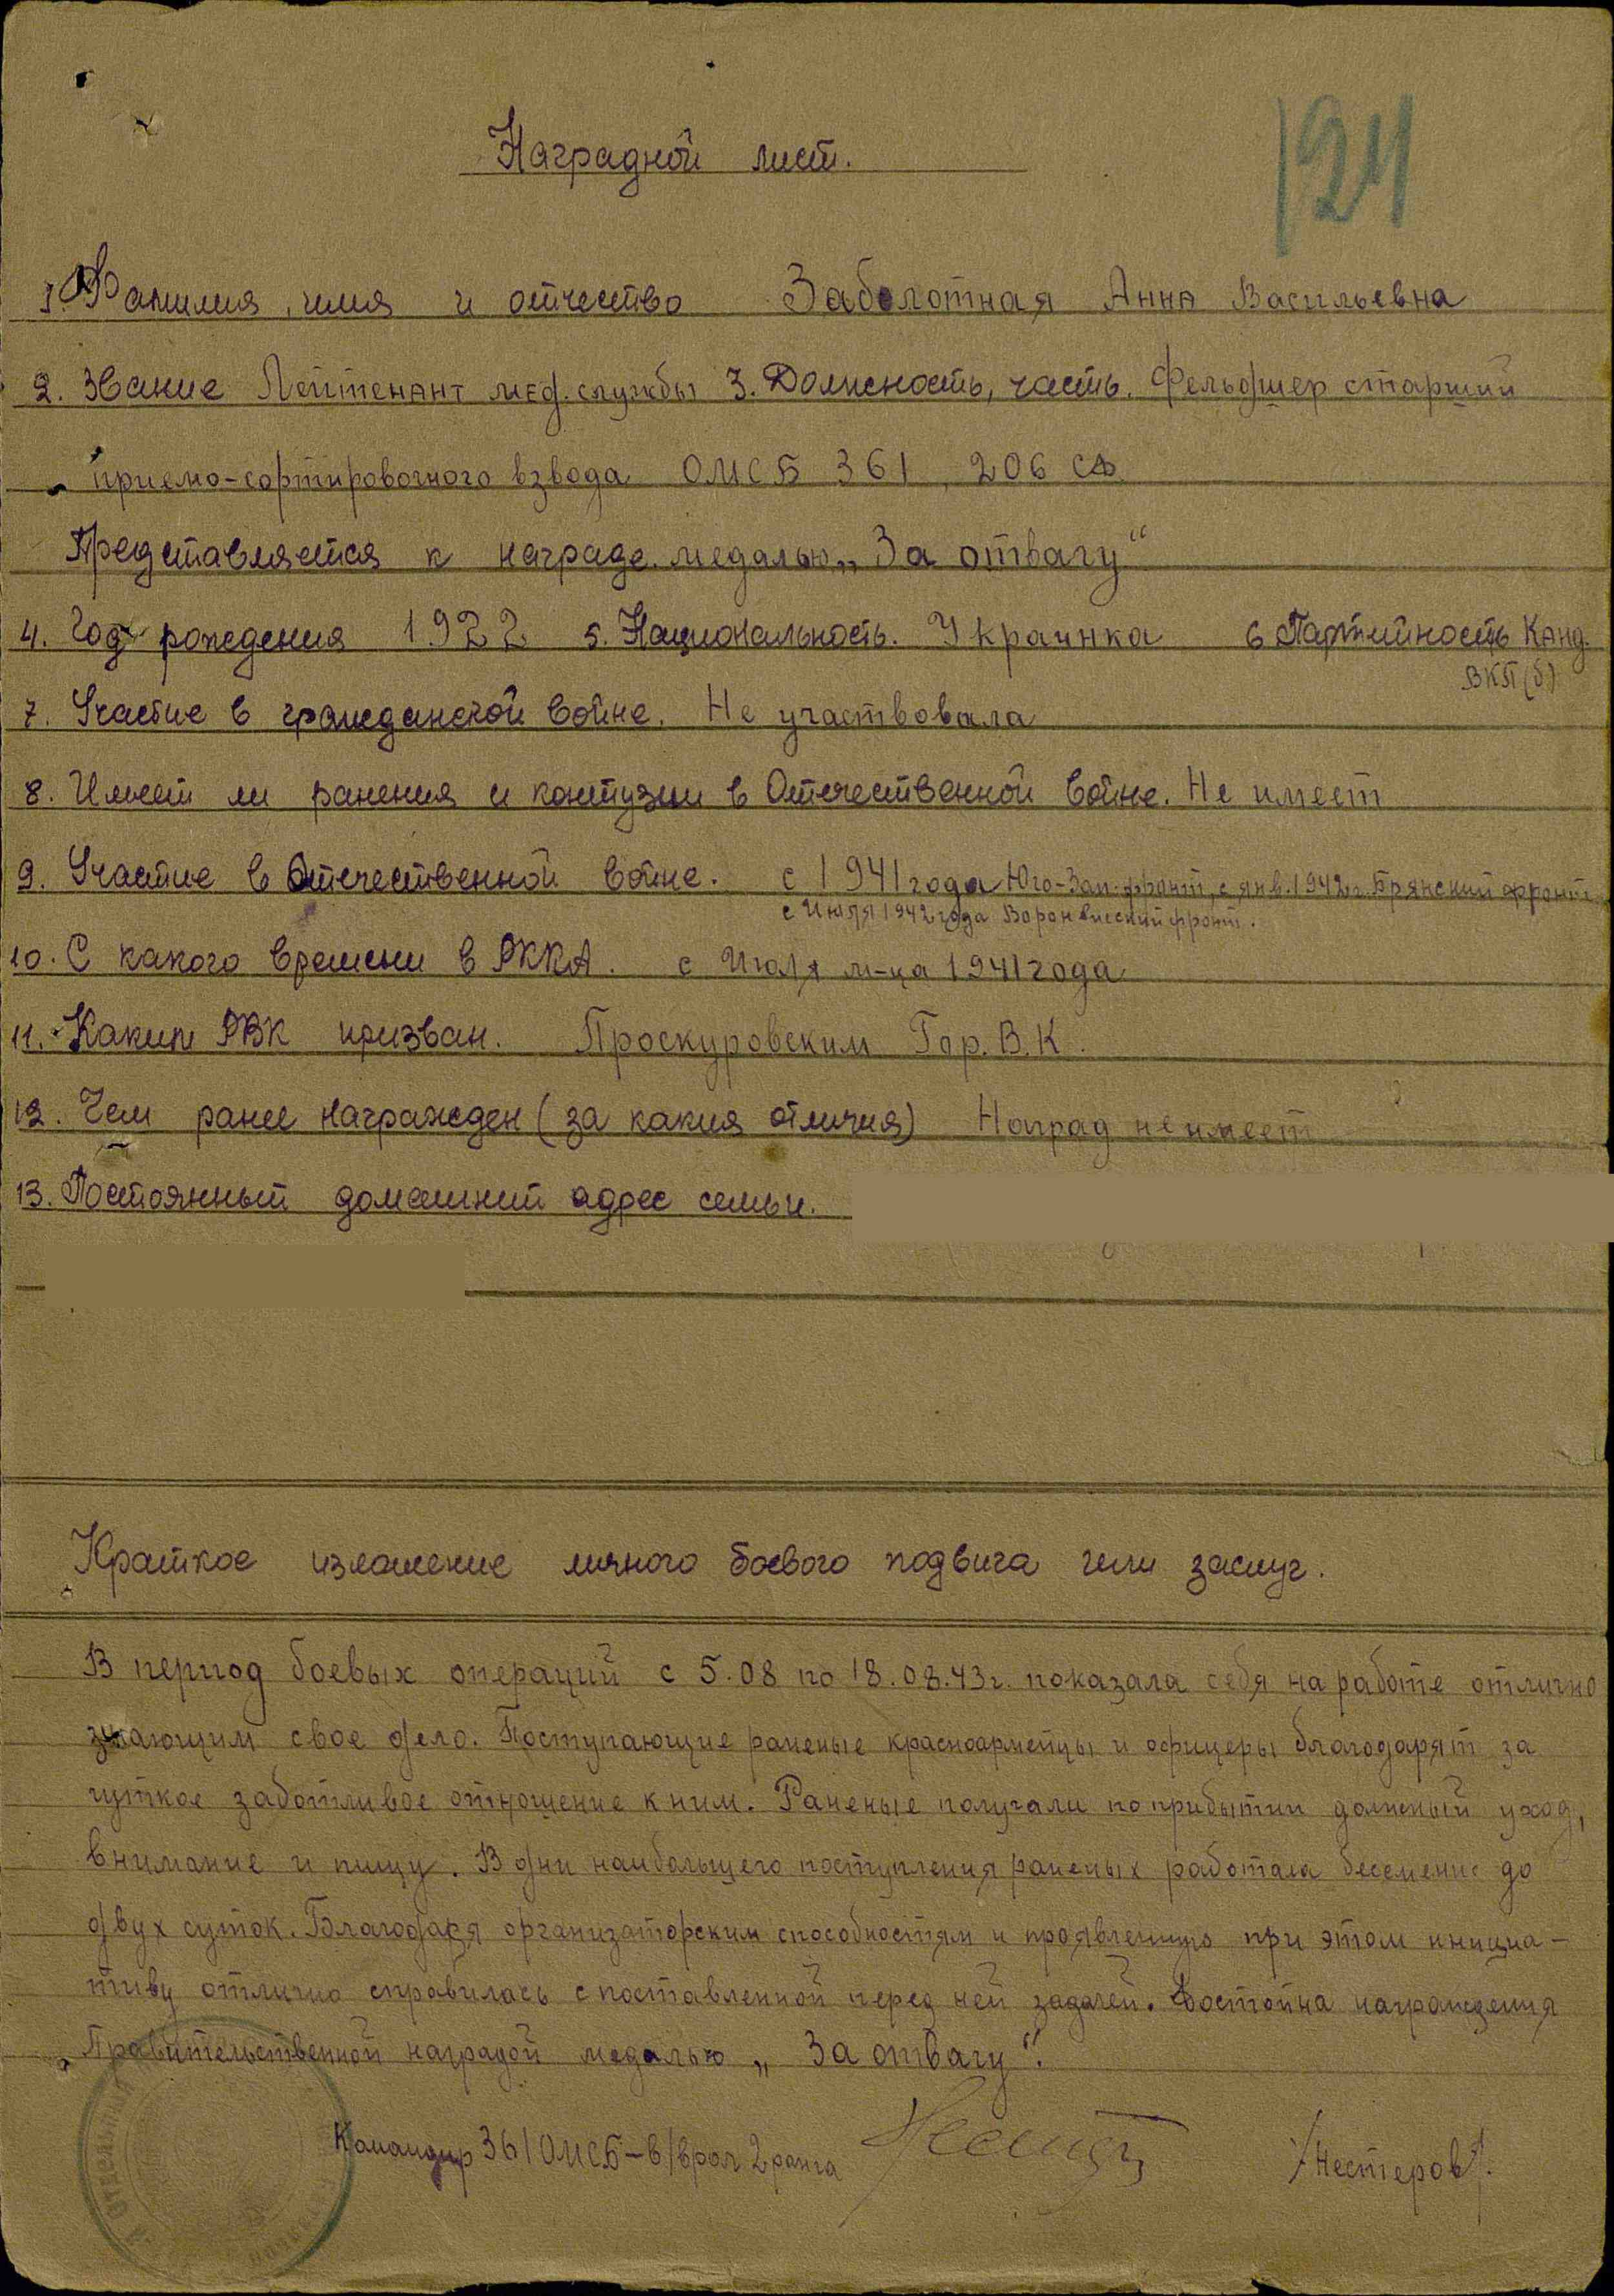 124
Наградной лист.
1. Фамилия, имя и отчество Заболотная Анна Васильевна
2. Звание Лейтенант мед. службы 3. Должность, часть. Фельдшер старший
приемо-сортировочного взвода ОМСБ 361, 206 СД
Представляется к награде медалью „За отвагу“
4. Год рождения 1922 5. Национальность. Украинка 6 Партийность Канд.
ВКП(б)
7. Участие в гражданской войне. Не участвовала
8. Имеет ли ранения и контузии в Отечественной войне. Не имеет
9. Участие в Отечественной войне. с 1941 года Юго-Зап. фронт, с янв. 1942 г. Брянский фронт
с Июля 1942 года Воронежский фронт.
10. С какого времени в РККА. с Июля м-ца 1941 года
11. Каким РВК призван. Проскуровским Гор. В. К.
12. Чем ранее награжден (за какия отличия) Наград не имеет
13. Постоянный домашний адрес семьи.
Краткое изложение личного боевого подвига или заслуг.
В период боевых операций с 5.08 по 18.08.43 г. показала себя на работе отлично
знающим свое дело. Поступающие раненые красноармейцы и офицеры благодарят за
чуткое заботливое отношение к ним. Раненые получали по прибытии должный уход,
внимание и пищу. В дни наибольшего поступления раненых работала бессменно до
двух суток. Благодаря организаторским способностям и проявленную при этом инициа-
тиву отлично справилась с поставленной перед ней задачей. Достойна награждения
Правительственной наградой медалью „За отвагу“.
Командир 361 ОМСБ-в/врач 2 ранга /Нестеров/.